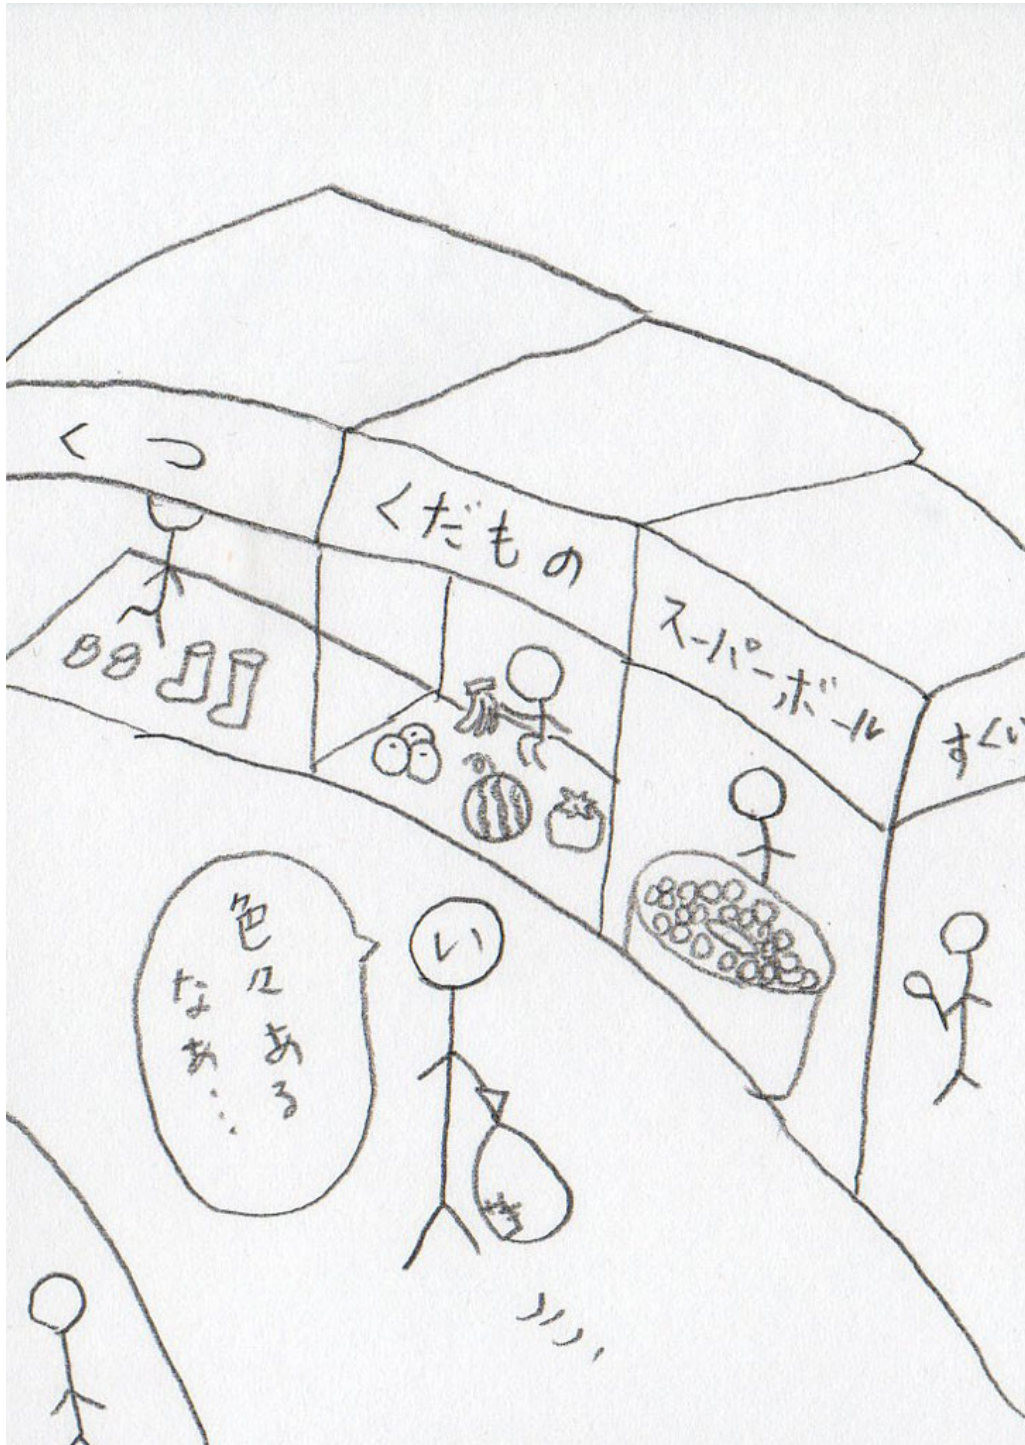 くつ
くだもの
スーパーボール
すくい
色々ある
なぁ…
い